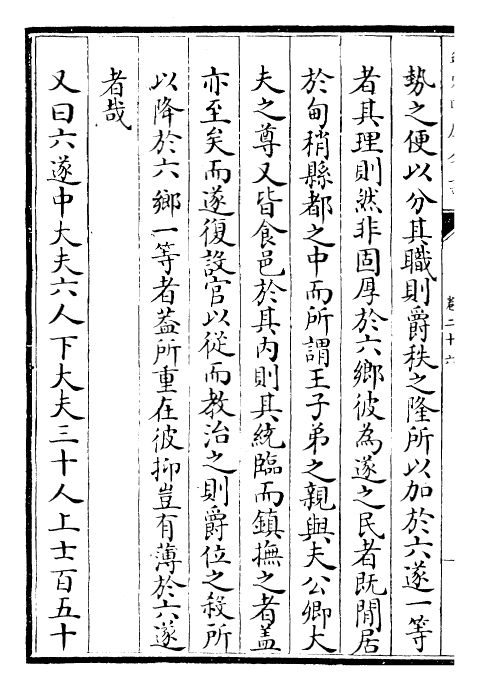 勢之便以分其職則爵秩之隆所以加於六遂一等
者其理則然非固厚於六鄉彼為遂之民者既閒居
於甸稍縣都之中而所謂王子弟之親與夫公卿大
夫之尊又皆食邑於其内則其統臨而鎮撫之者蓋
亦至矣而遂復設官以從而教治之則爵位之殺所
以降於六鄉一等者葢所重在彼抑豈有薄於六遂
者哉
又曰六遂中大夫六人下大夫三十人上士百五十
卷二十六